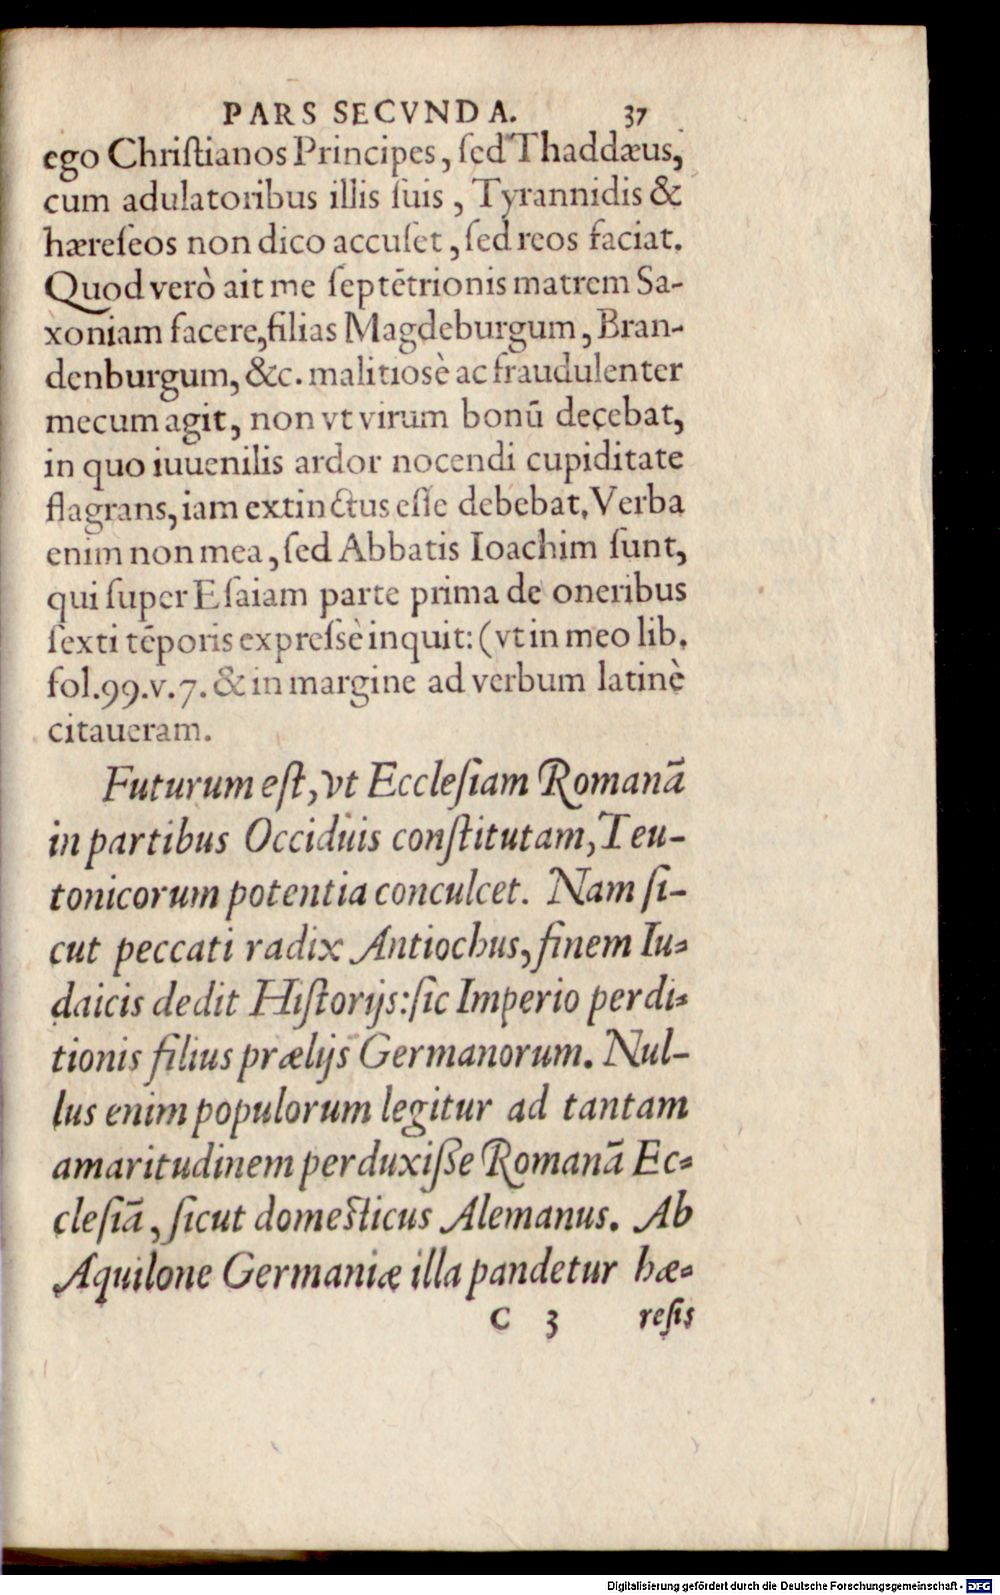 PARS SECVNDA. 37
ego Chriſtianos Principes, ſed Thaddæus,
cum adulatoribus illis ſuis, Tyrannidis &
hæreſeos non dico accuſet, ſed reos faciat.
Quod verò ait me ſeptētrionis matrem Sa-
xoniam facere, filias Magdeburgum, Bran-
denburgum, &c. malitiosè ac fraudulenter
mecum agit, non vt virum bonū decebat,
in quo iuuenilis ardor nocendi cupiditate
flagrans, iam extinctus eſſe debebat. Verba
enim non mea, ſed Abbatis Ioachim ſunt,
qui ſuper Eſaiam parte prima de oneribus
ſexti tēporis expreſsè inquit: (vt in meo lib.
fol. 99. v. 7. & in margine ad verbum latinè
citaueram.
Futurum eſt, vt Eccleſiam Romanā
in partibus Occiduis conſtitutam, Teu-
tonicorum potentia conculcet. Nam ſi-
cut peccati radix Antiochus, finem Iu-
daicis dedit Hiſtorijs: ſic Imperio perdi-
tionis filius prælijs Germanorum. Nul-
lus enim populorum legitur ad tantam
amaritudinem perduxiſſe Romanā Ec-
cleſiā, ſicut domeſticus Alemanus. Ab
Aquilone Germaniæ illa pandetur hæ-
C 3 reſis
Digitalisierung gefördert durch die Deutsche Forschungsgemeinschaft - DFG